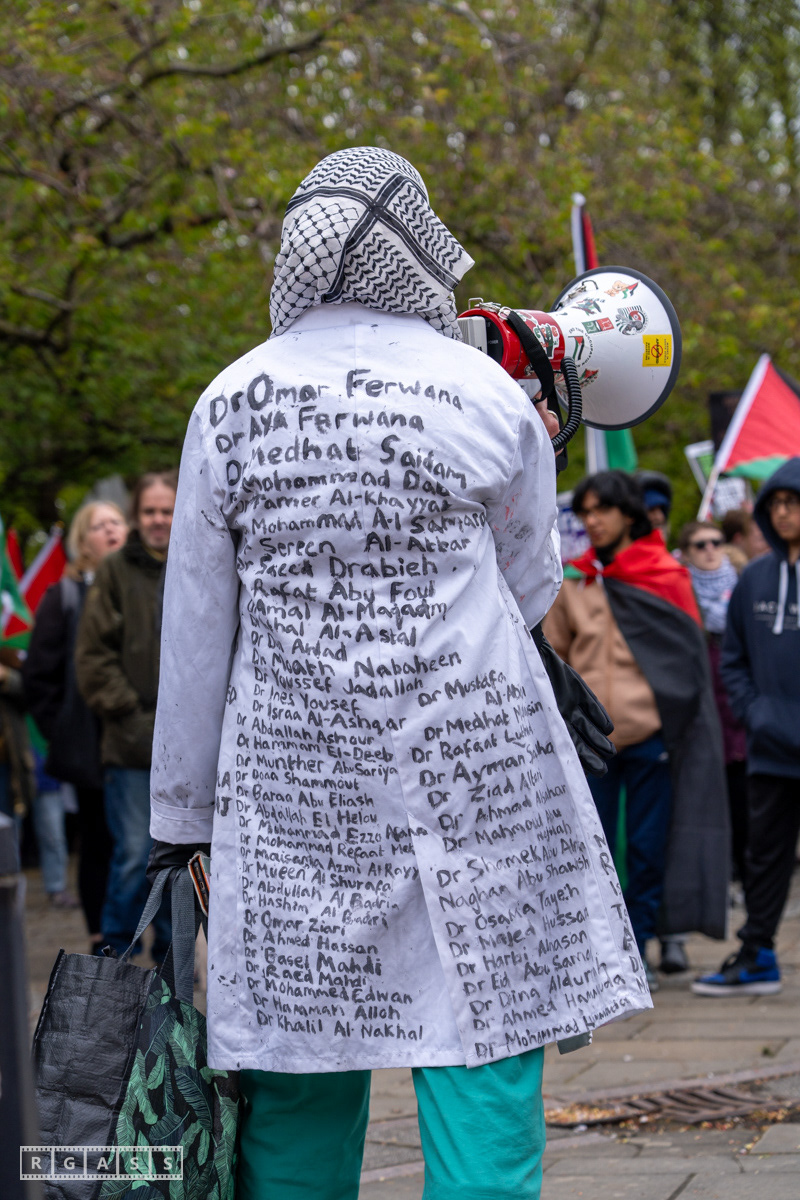 Dr Omar Ferwana
Dr AYA Ferwana
Dr Medhat Saidam
Dr Mohammad Dab
Dr Tamer Al-Khayyat
Mohammad Al
Sereen Al-Attar
Dr Saeed Drabieh
Rafat Abu Foul
Amal Al-Maqadm
Al-Astal
Dr Da Awlad
Dr Moath Nabaheen
Dr Youssef Jadallah
Dr Ines Yousef
Dr Israa Al-Ashqar
Dr Abdallah Ashour
Dr Hammam El-Deeb
Dr Munther Abu Sariya
Dr Doaa Shammout
Dr Baraa Abu Eliash
Dr Abdallah El Helou
Dr Muhammad Ezzo
Dr Mohammad Refaat
Dr Maisarha Azmi Al Rayy
Dr Mueen Al Shurafa
Dr Abdullah Al Badri
Dr Hashim Al Badri
Dr Omar Ziari
Dr Ahmed Hassan
Dr Basel Mahdi
Dr Raed Mahdi
Dr Mohammed Edwan
Dr Hamaman Alloh
Dr Khalil Al-Nakhal
Dr Mustafa
Dr Medhat
Dr Rafaat
Dr Ayman
Dr Ziad
Dr Ahmad
Dr Mahmoud Abu
Dr Shamek Abu
Naghan Abu Shawish
Dr Osama Tayeh
Dr Majed Hussar
Dr Harbi Ahasan
Dr Ed Abu
Dr Dina Aldur
Dr Ahmed
Dr Mohammad
RGASS